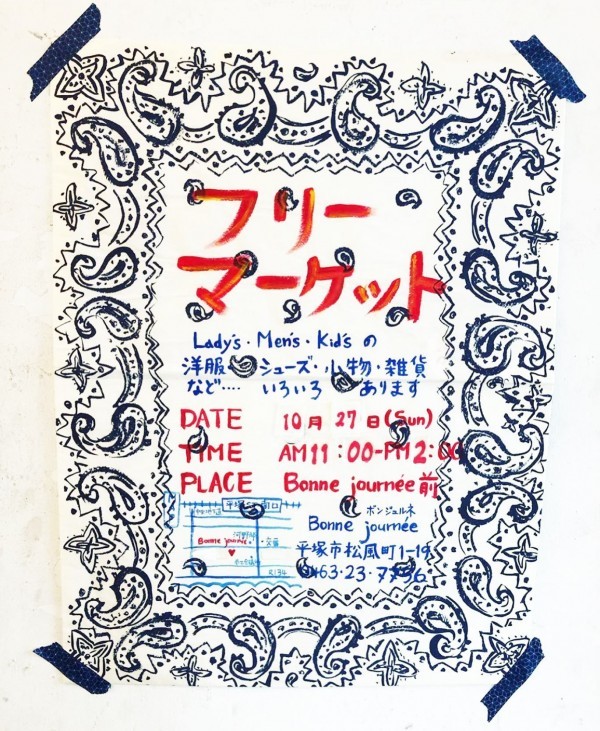 フリー
マーケット
Lady's・Men's・Kid'sの
洋服・シューズ・小物・雑貨
など‥‥ いろいろ あります
DATE 10月27日(Sun)
TIME AM11:00-PM2:00
PLACE Bonne journée前
ボンジュルネ
Bonne journée
平塚市松風町1-19
Bonne journée
R134